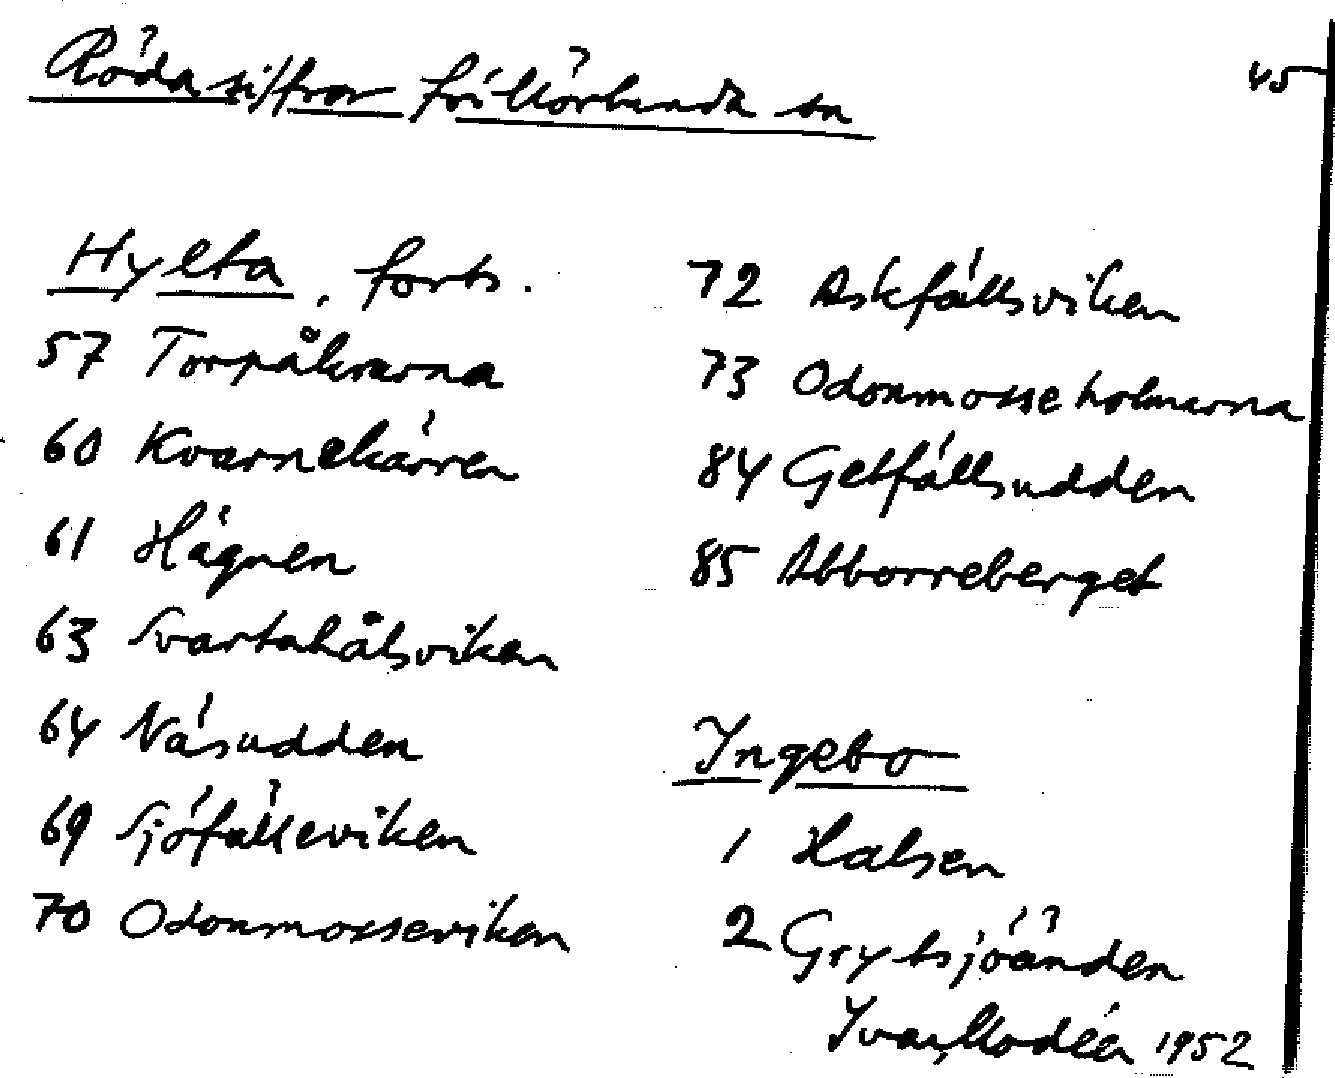 Röda siffror förklörbanda sn
45
Hylta, forts.
57 Torpåkrarna
60 Kvarnekärren
61 Hägnen
63 Svartahålsviken
64 Näsudden
69 Sjöfälleviken
70 Odonmosseviken
72 Askfällsviken
73 Odonmosseholmarna
84 Getfällsudden
85 Abborreberget
Ingebo
1 Halsen
2 Grytsjöänden
Ivar Modéer 1952